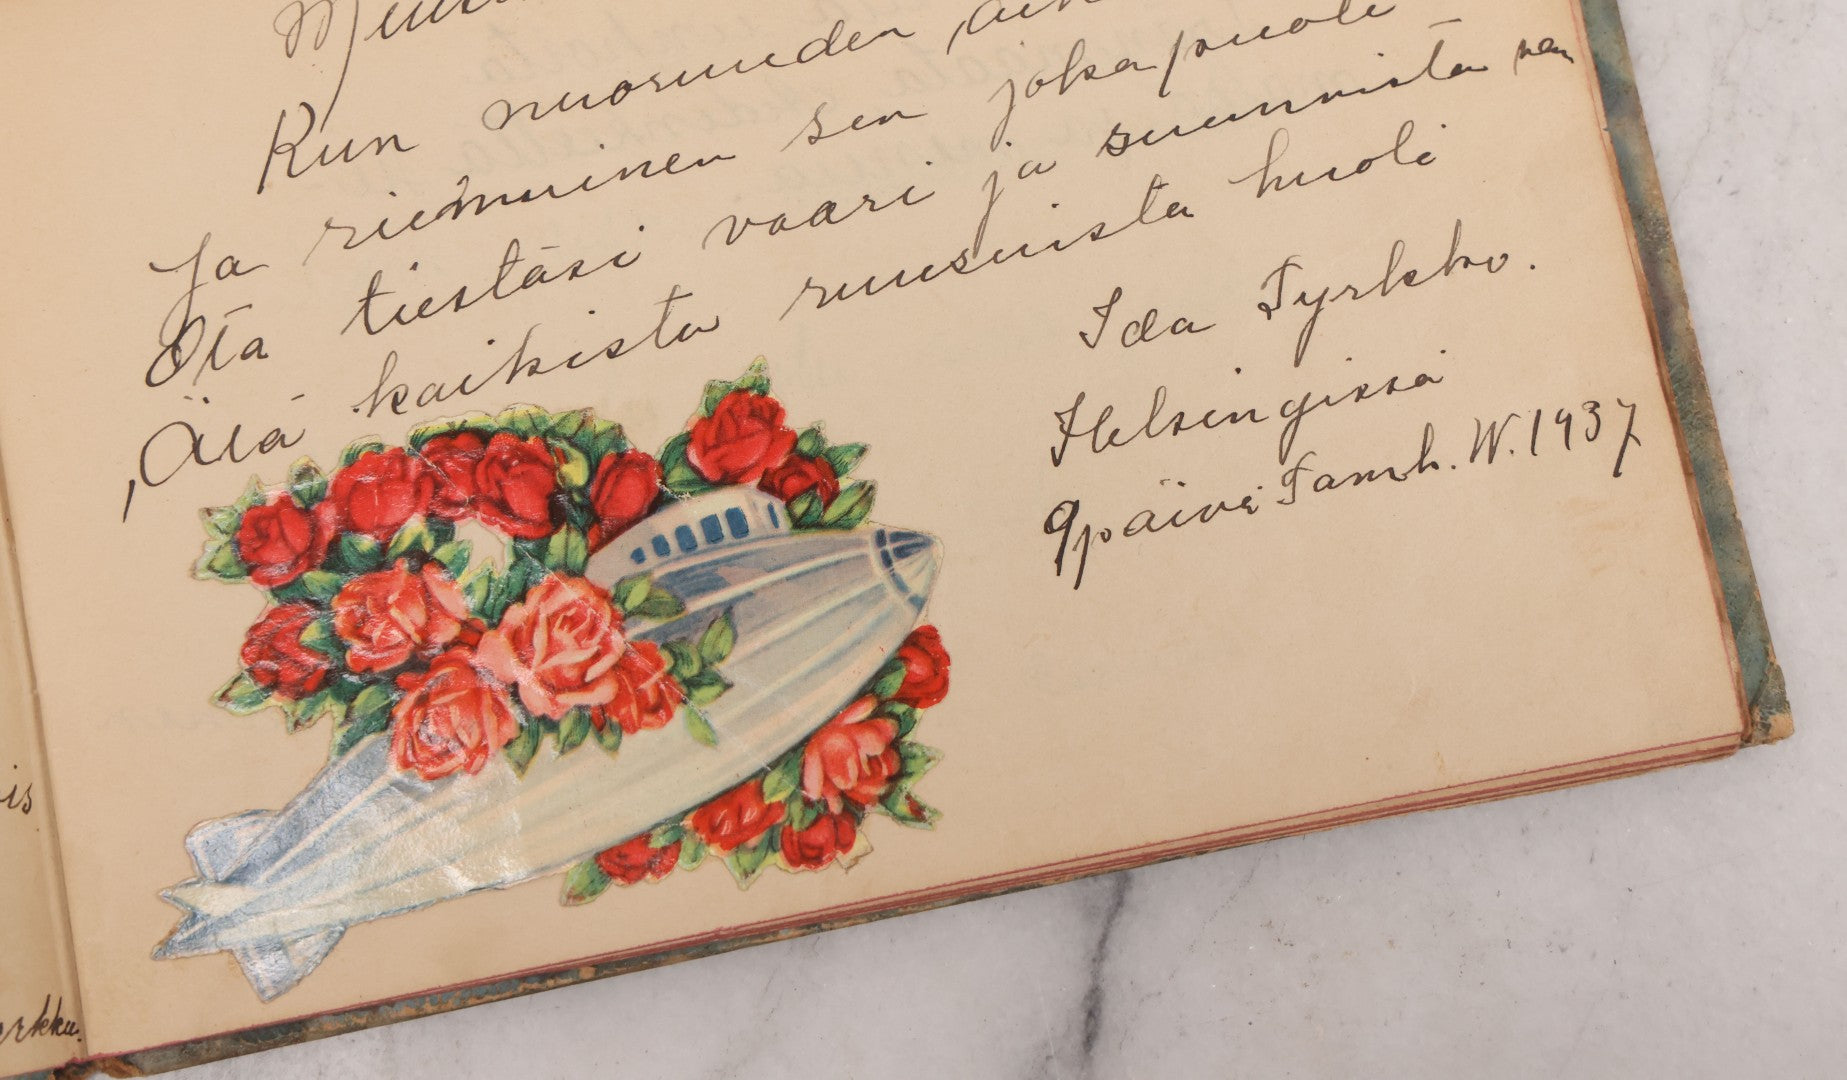 Kun nuoruuden
Ja riemuinen sen joka puoli
Ota tiestäsi vaari ja suunnista vaan
Älä kaikista ruusuista huoli
Ida Tyrkkö.
Helsingissä
9 päivä Tamh. W. 1937
is
rkku.